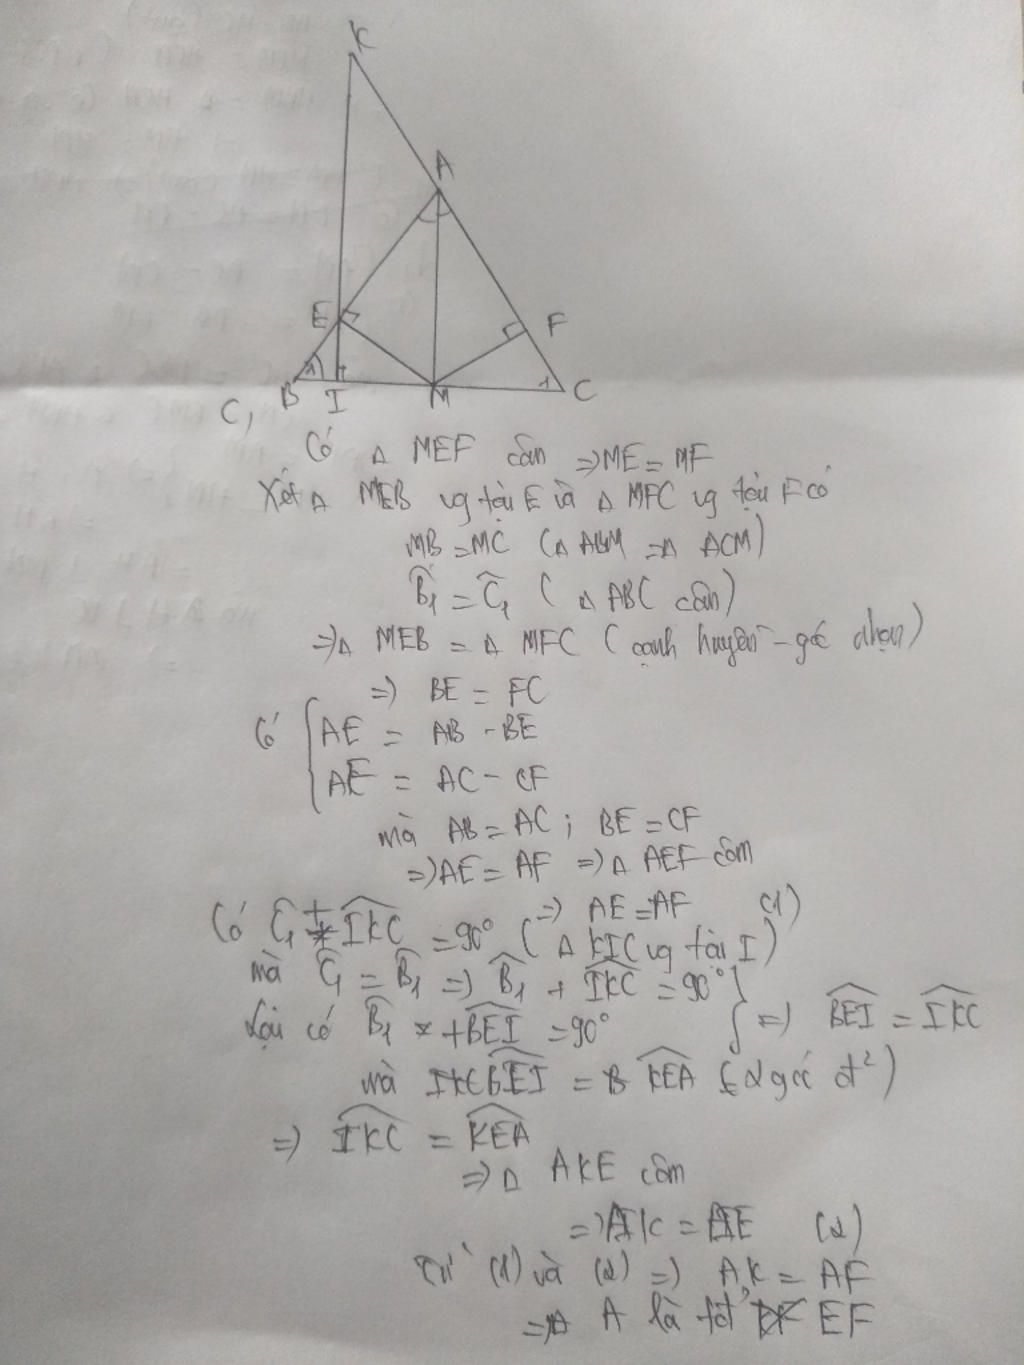 K
A
E
F
B I M C
1 1
C,
Có Δ MEF cân => ME = MF
Xét Δ MEB vg tại E và Δ MFC vg tại F có
MB = MC (Δ ABM = Δ ACM)
B̂1 = Ĉ1 (Δ ABC cân)
=> Δ MEB = Δ MFC (cạnh huyền - góc nhọn)
=> BE = FC
Có { AE = AB - BE
AF = AC - CF
mà AB = AC ; BE = CF
=> AE = AF => Δ AEF cân
=> AE = AF (1)
Có Ĉ1 + IKC = 90° (Δ KIC vg tại I)
mà Ĉ1 = B̂1 => B̂1 + IKC = 90° }
Lại có B̂1 + BEI = 90° } => BEI = IKC
mà BEI = KEA (2 góc đ²)
=> IKC = KEA
=> Δ AKE cân
=> AK = AE (2)
Từ (1) và (2) => AK = AF
=> A là tđ EF